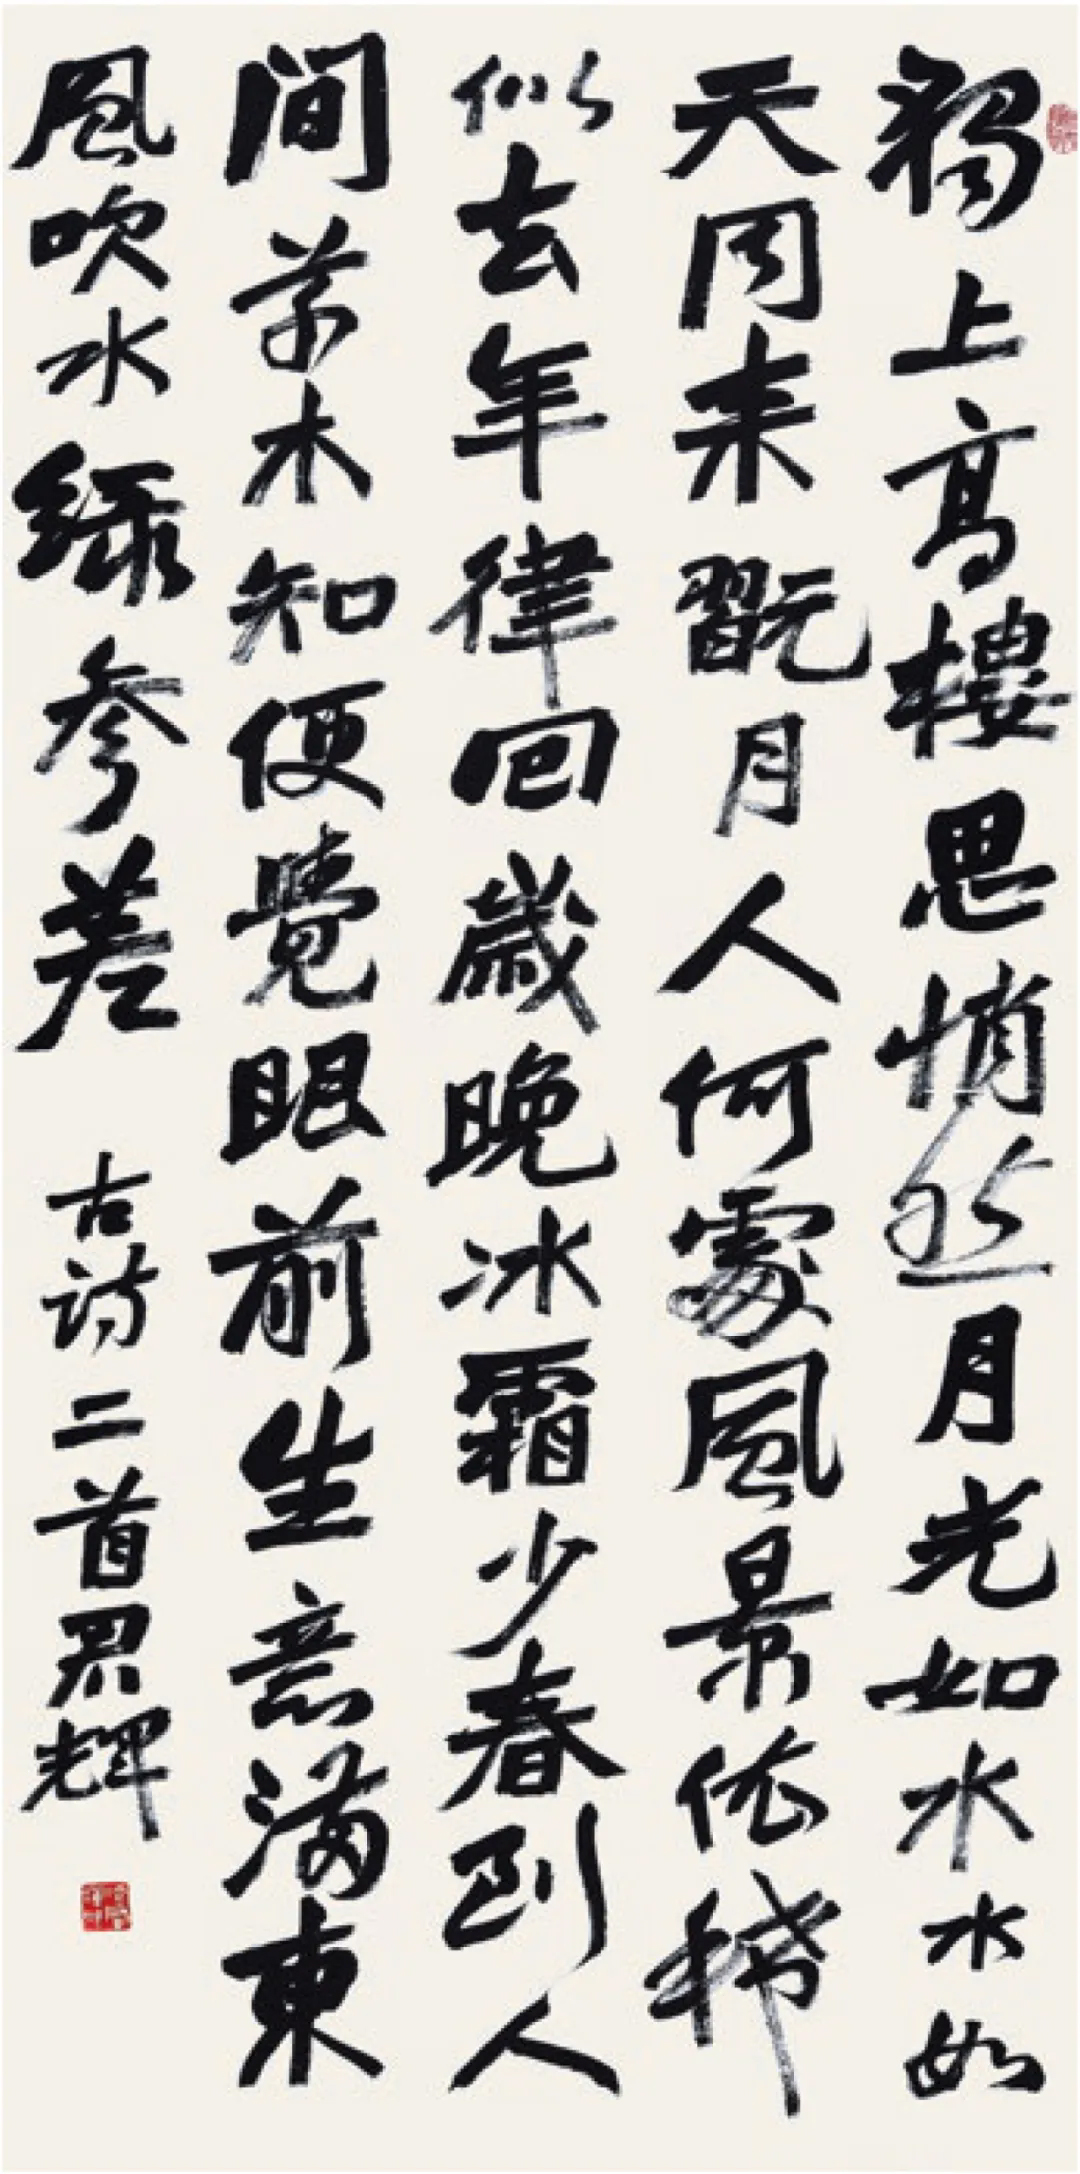 獨上高樓思悄然月光如水水如
天同来翫月人何處風景依稀
似去年律回歲晚冰霜少春到人
間草木知便覺眼前生意满東
風吹水緑参差 古诗二首 輝